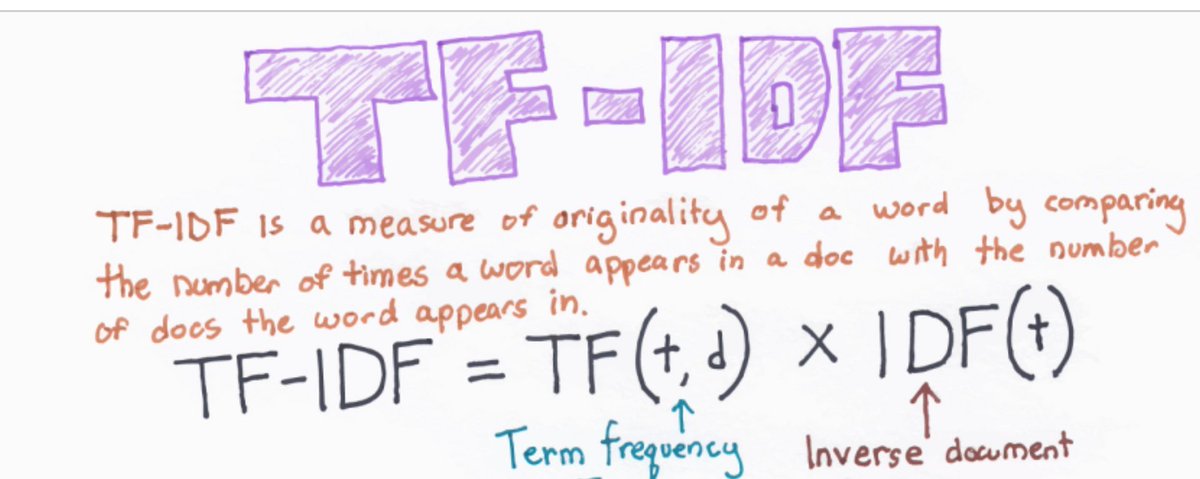 TF-IDF
TF-IDF is a measure of originality of a word by comparing
the number of times a word appears in a doc with the number
of docs the word appears in.
TF-IDF = TF(t, d) × IDF(t)
Term frequency
Inverse document